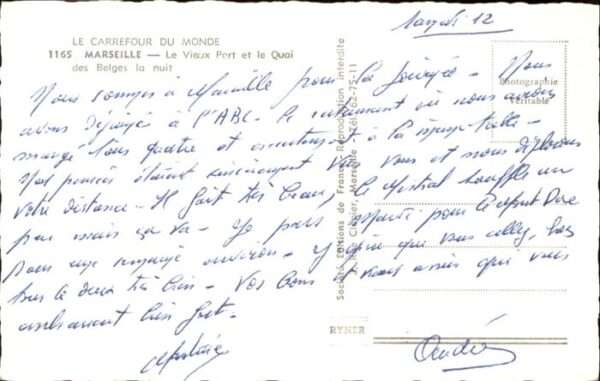 Samedi 12
LE CARREFOUR DU MONDE
1165 MARSEILLE — Le Vieux Port et le Quai
des Belges la nuit
Photographie
Véritable
Nous sommes à Marseille pour la journée - Nous
avons déjeuné à l'ABC - le restaurant où nous avions
mangé tous quatre et à la même table -
Nos pensées étaient vers vous et nous déplorons
votre distance - Il fait très beau, le Mistral souffle un
peu mais ça va - Je pars mardi pour le Mont Dore
pour que vous alliez bien
tous les deux très bien - Vos bons amis qui vous
embrassent bien fort -
André
Société Editions de France Reproduction interdite
Marseille Tél. 62-75-11
RYNER